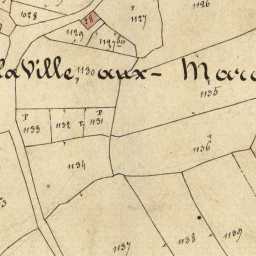 1126
1127
1128
28
1129
1127 bis
la Ville aux - Marc
1130
1135
P.
P.
1133
1132
P.
1131
1136
1134
3
1137
1138
1139